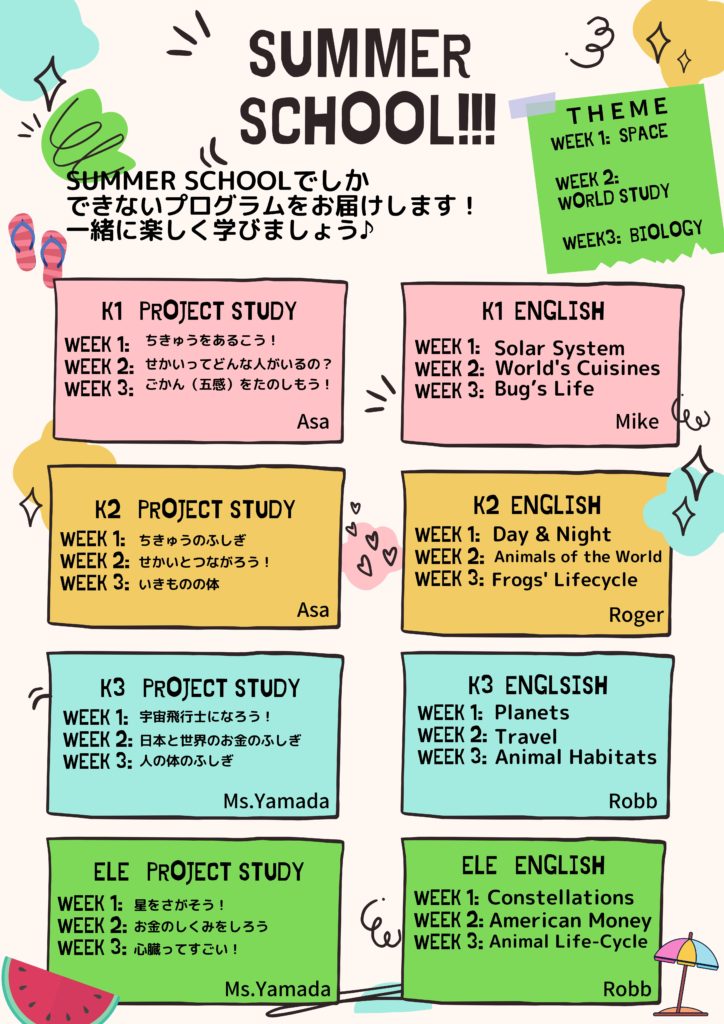 SUMMER
SCHOOL!!!
THEME
WEEK 1: SPACE
WEEK 2:
WORLD STUDY
WEEK3: BIOLOGY
SUMMER SCHOOLでしか
できないプログラムをお届けします！
一緒に楽しく学びましょう♪
K1 PROJECT STUDY
WEEK 1: ちきゅうをあるこう！
WEEK 2: せかいってどんな人がいるの？
WEEK 3: ごかん（五感）をたのしもう！
Asa
K1 ENGLISH
WEEK 1: Solar System
WEEK 2: World's Cuisines
WEEK 3: Bug’s Life
Mike
K2 PROJECT STUDY
WEEK 1: ちきゅうのふしぎ
WEEK 2: せかいとつながろう！
WEEK 3: いきものの体
Asa
K2 ENGLISH
WEEK 1: Day & Night
WEEK 2: Animals of the World
WEEK 3: Frogs' Lifecycle
Roger
K3 PROJECT STUDY
WEEK 1: 宇宙飛行士になろう！
WEEK 2: 日本と世界のお金のふしぎ
WEEK 3: 人の体のふしぎ
Ms.Yamada
K3 ENGLSISH
WEEK 1: Planets
WEEK 2: Travel
WEEK 3: Animal Habitats
Robb
ELE PROJECT STUDY
WEEK 1: 星をさがそう！
WEEK 2: お金のしくみをしろう
WEEK 3: 心臓ってすごい！
Ms.Yamada
ELE ENGLISH
WEEK 1: Constellations
WEEK 2: American Money
WEEK 3: Animal Life-Cycle
Robb